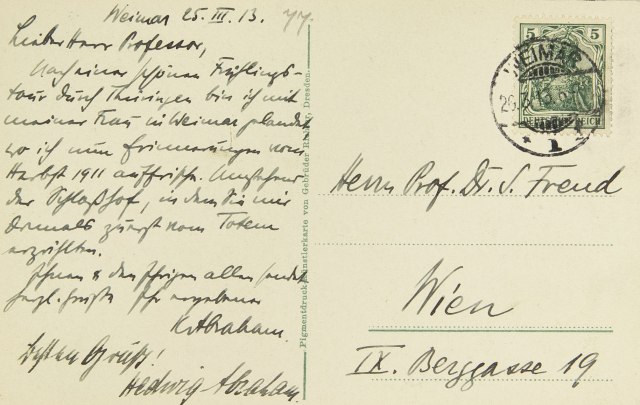 Weimar 25. III. 13.
77.
Lieber Herr Professor,
Nach einer schönen Frühlings-
tour durch Thüringen bin ich mit
meiner Frau in Weimar gelandet,
wo ich nun Erinnerungen vom
Herbst 1911 auffrische. Umstehend
der Schloßhof, in dem Sie mir
damals zuerst vom Totem
erzählten.
Ihnen & den Ihrigen allen sendet
herzl. Grüße Ihr ergebener
K. Abraham.
Besten Gruß!
Hedwig Abraham.
Pigmentdruck-Künstlerkarte von Gebrüder Dresden.
5 5
DEUTSCHES REICH
WEIMAR
26.3.13
1
Herrn Prof. Dr. S. Freud
Wien
IX. Berggasse 19